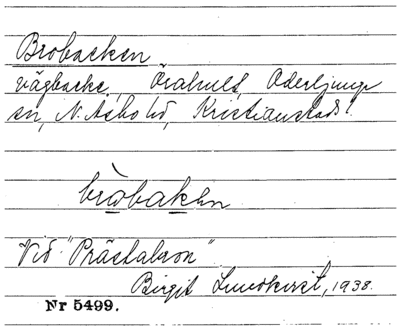 Brobacken
vägbacke, Örahult, Oderljunga
sn, N. Åsbo hd, Kristianstads l.
bròbakən
Vid "Prästabron"
Birgit Lundkvist, 1938.
Nr 5499.